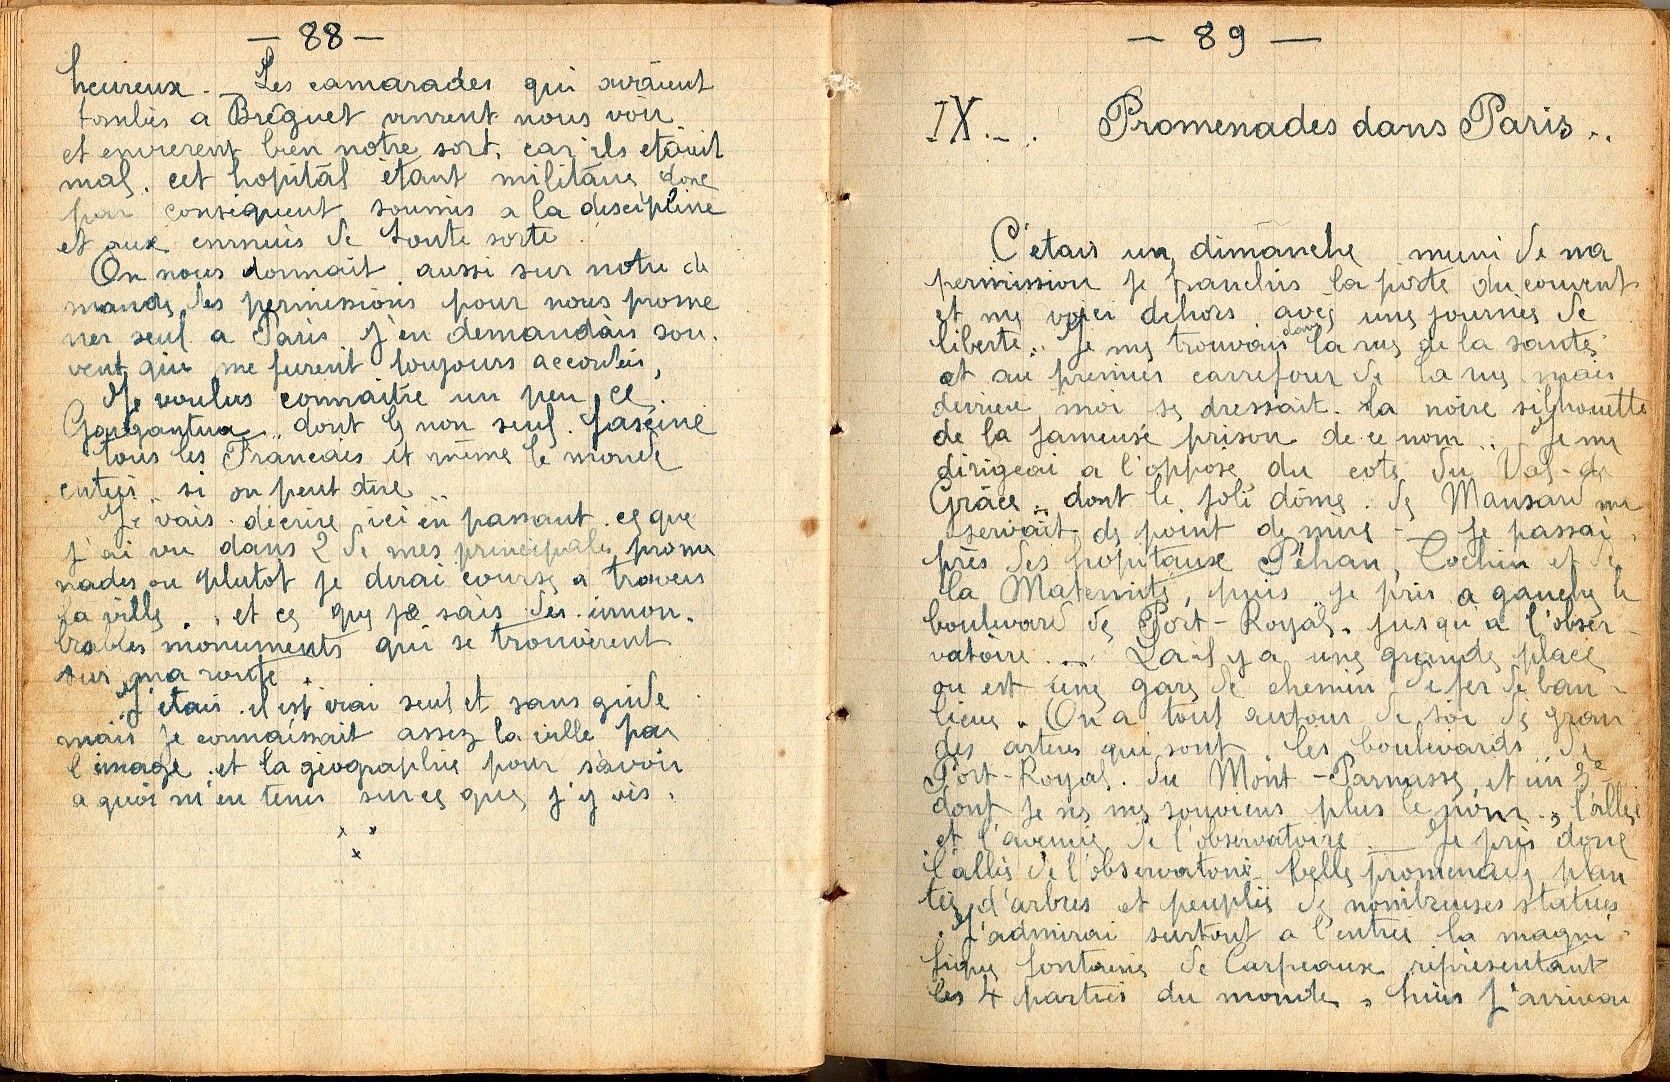 — 88 —
heureux. _ Les camarades qui avaient
tombés a Bréguet vinrent nous voir
et envièrent bien notre sort, car ils etaint
mal. cet hopitâl étant militaire donc
par conséquent soumis a la discipline
et aux ennuis de toute sorte
On nous donnait aussi sur notre de
mande des permissions pour nous prome
ner seul a Paris j'en demandàis sou.
vent qui me furent toujours accordés,
Je voulus connaitre un peu ce.
Gargantua.. dont le non seul. fascine
tous les Francais et même le monde
entier. si on peut dire ..
Je vais. décrire ici en passant. ce que
j'ai vu dans 2 de mes principales prome
nades ou plutot je dirai course a travers
la ville.. et ce que je sais des innom.
brables monuments qui se trouvèrent
sur ma route.
J'etais. il est vrai seul et sans guide
mais je connaissait assez la ville par
l'image. et la géographie pour sàvoir
a quoi m'en tenir sur ce que j'y vis.
x x
x
— 89 —
IX._. Promenades dans Paris..
C'etais un dimanche muni de ma
permission je franchis la porte du couvent
et me voici dehors avec une journée de
liberté.. Je me trouvais dans la rue de la santé
et au premier carrefour de la rue mais
derriere moi se dressait. la noire silhouette
de la fameuse prison de ce nom.. Je me
dirigeai a l'opposé du coté du Val-de
Grâce.. dont le joli dôme. de Mansard me
servait de point de mire - _ Je passai
près des hopitaux Péhan, Cochin et de
la Maternité, puis je pris a gauche le
boulevard de Port-Royal. jusqu'a l'obser-
vatoire. _ La il y a une grande place
ou est une gare de chemin de fer de ban-
lieue. On a tout autour de soi de gran
des artères qui sont les boulevards de
Port-Royal. du Mont-Parnasse, et un 3e
dont je ne me souviens plus le nom., l'allée
et l'avenue de l'observatoire _ Je pris donc
l'allée de l'observatoire belle promenade plan
tée d'arbres et peuplée de nombreuses statues
J'admirai surtout a l'entrée la magni-
fique fontaine de Carpeaux représentant
les 4 parties du monde, puis j'arrivai